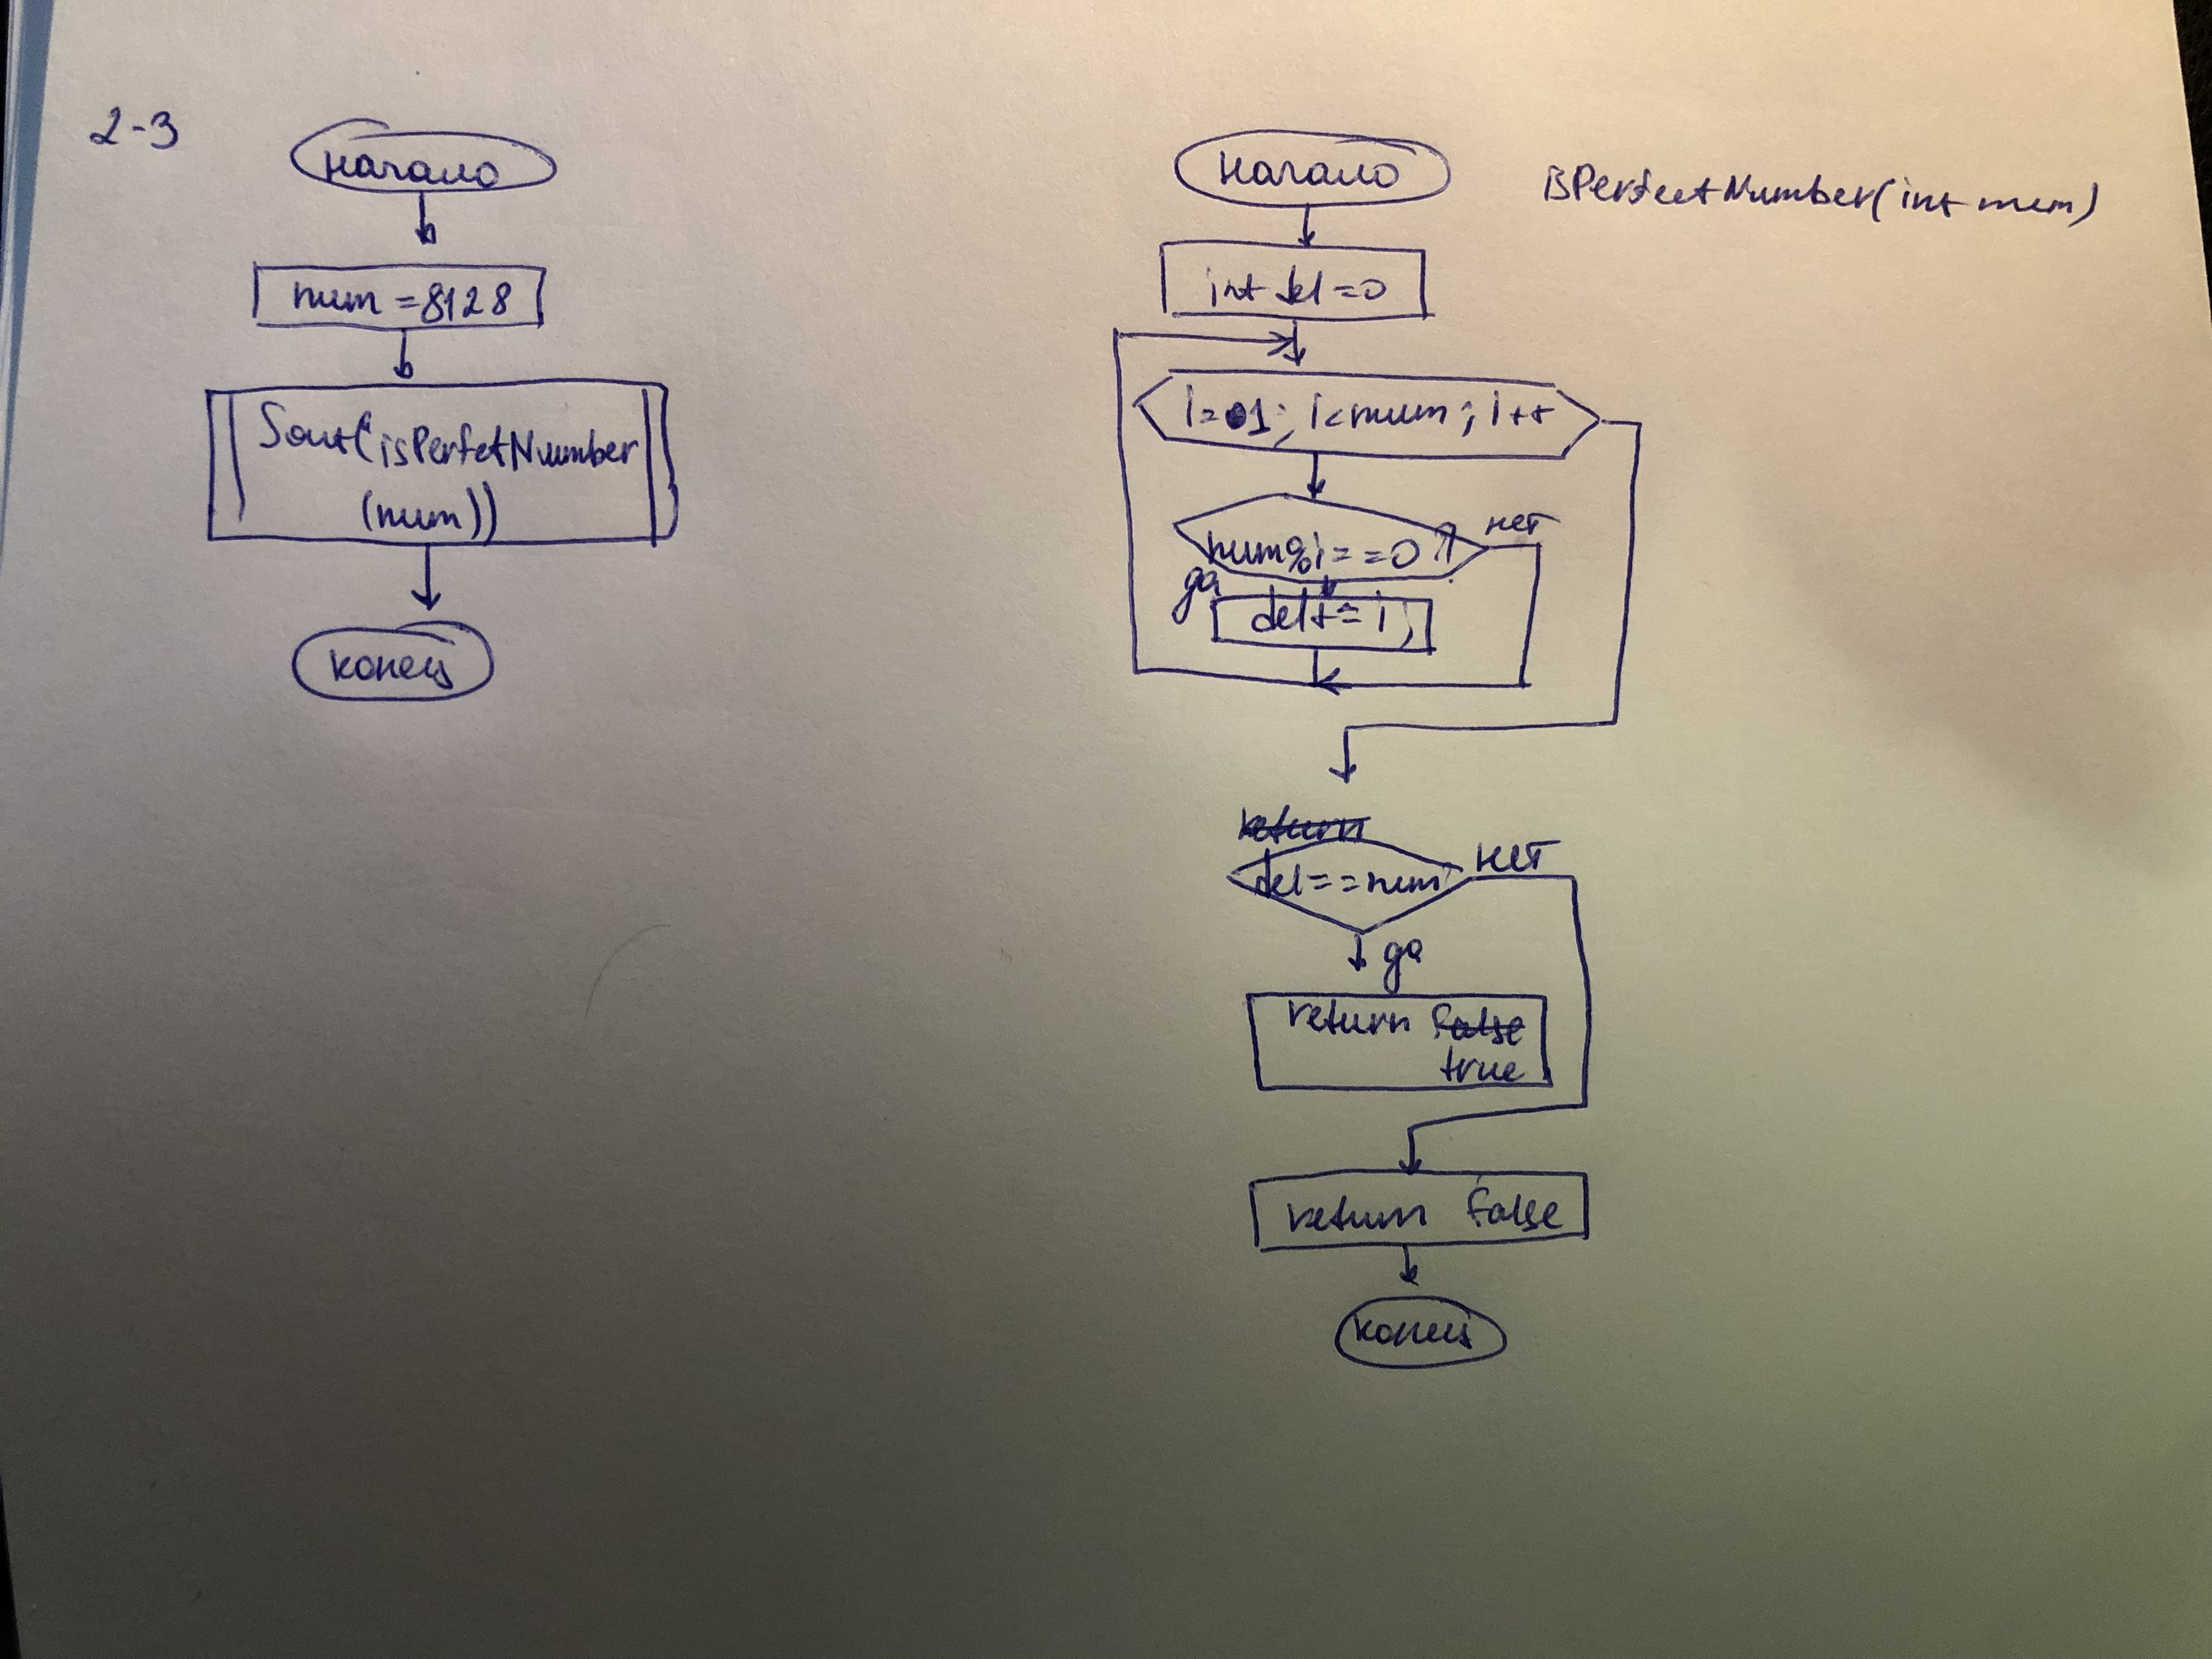 2-3
начало
num = 8128
Sout(isPerfetNumber
(num))
конец
начало
isPerfectNumber(int num)
int del = 0
i = 1; i < num; i++
num%i == 0 ?
нет
да
del += i;
return
del == num
нет
да
return false
true
return false
конец